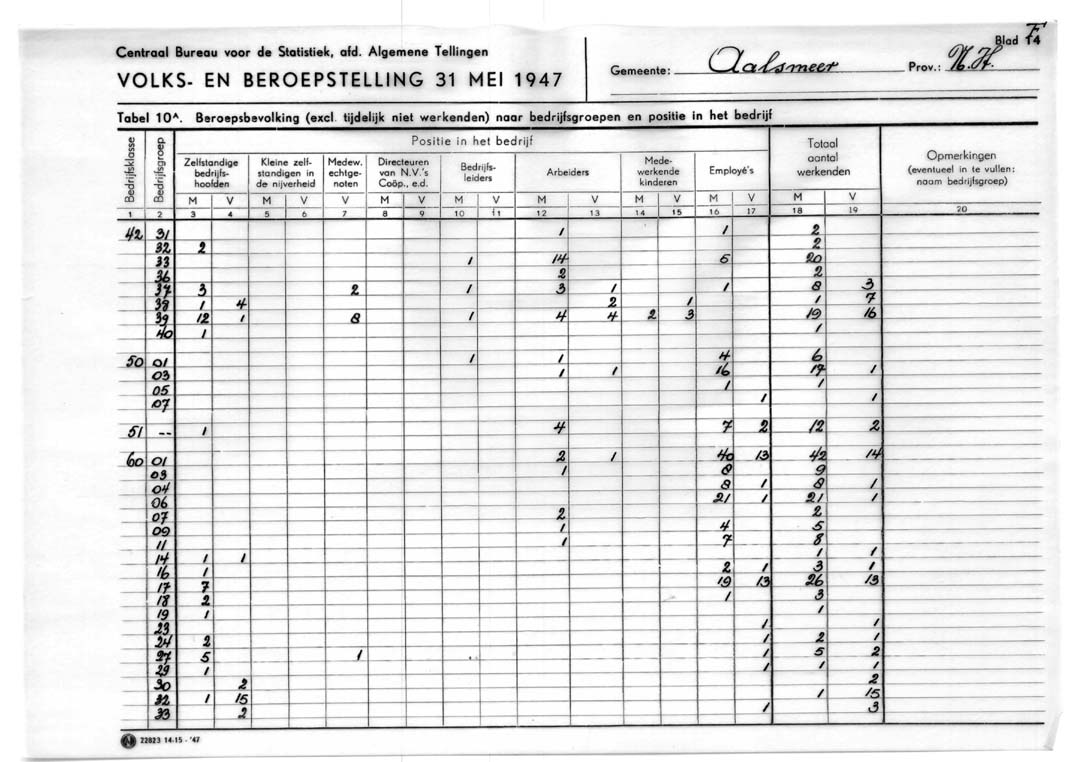 Blad F4
Centraal Bureau voor de Statistiek, afd. Algemene Tellingen
VOLKS- EN BEROEPSTELLING 31 MEI 1947
Gemeente: Aalsmeer Prov.: N.H.
Tabel 10A. Beroepsbevolking (excl. tijdelijk niet werkenden) naar bedrijfsgroepen en positie in het bedrijf
Bedrijfsklasse Bedrijfsgroep Positie in het bedrijf Totaal aantal werkenden Opmerkingen (eventueel in te vullen: naam bedrijfsgroep)
Zelfstandige bedrijfs- hoofden Kleine zelf- standigen in de nijverheid Medew. echtge- noten Directeuren van N.V.'s Coöp., e.d. Bedrijfs- leiders Arbeiders Mede- werkende kinderen Employé's
M V M V V M V M V M V M V M V M V
1 2 3 4 5 6 7 8 9 10 11 12 13 14 15 16 17 18 19 20
42 31 1 1 2
32 2 2
33 1 14 5 20
36 2 2
37 3 2 1 3 1 1 8 3
38 1 4 2 1 1 7
39 12 1 8 1 4 4 2 3 19 16
40 1 1
50 01 1 1 4 6
03 1 1 16 17 1
05 1 1
07 1 1
51 -- 1 4 7 2 12 2
60 01 2 1 40 13 42 14
03 1 8 9
04 8 1 8 1
06 21 1 21 1
07 2 2
09 1 4 5
11 1 7 8
14 1 1 1 1
16 1 2 1 3 1
17 7 19 13 26 13
18 2 1 3
19 1 1
23 1 1
24 2 1 2 1
27 5 1 1 5 2
29 1 1 1 1
30 2 2
32 1 15 1 15
33 2 1 3
22823 14-15 - '47